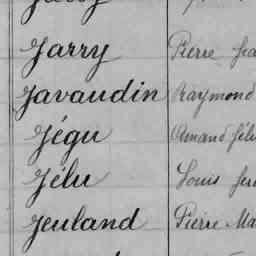 Jarry Pierre
Javaudin Raymond
Jégu Amand
Jélu Louis
Jeuland Pierre Ma